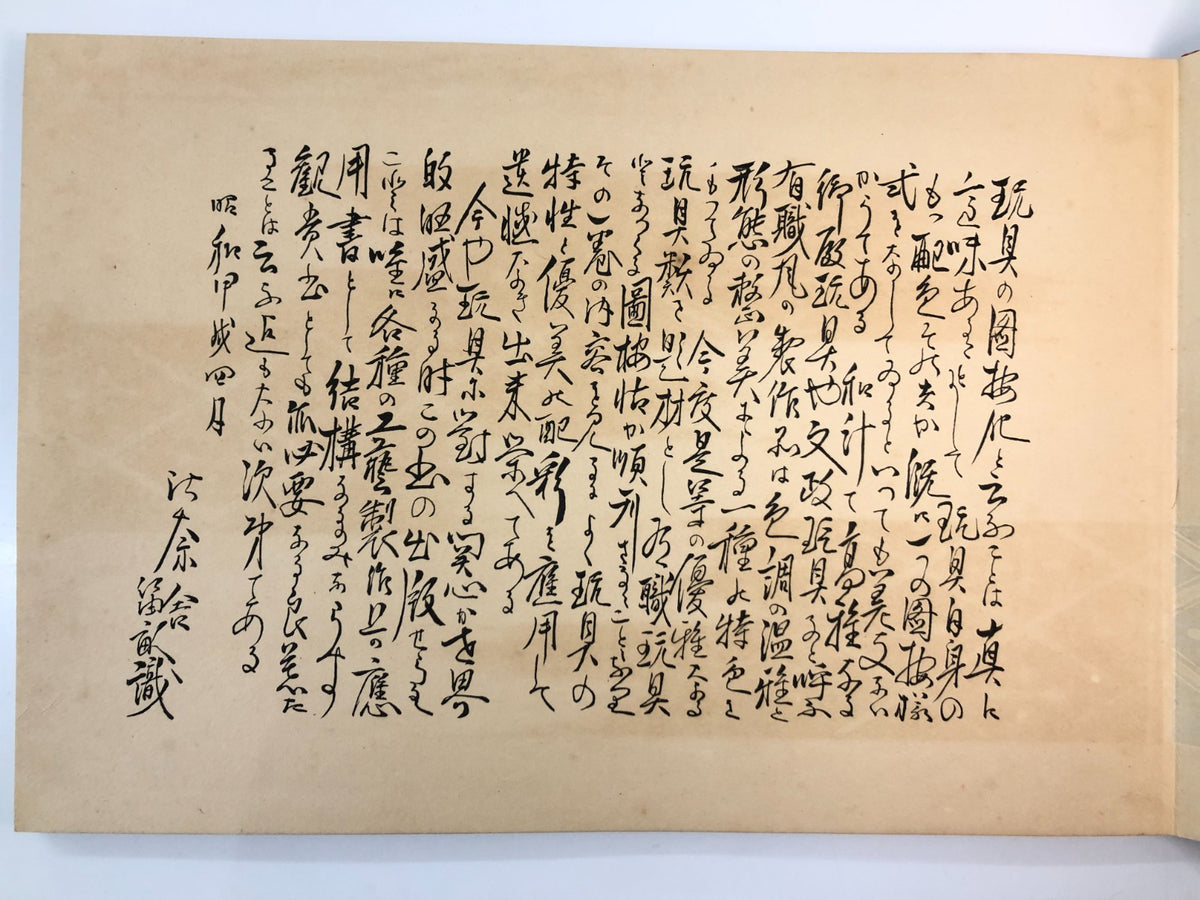 玩具の圖按化と云ふことは真に
意味あることにして玩具自身の
もつ配色その夫か既に一つの圖按様
式をなしてゐるといつても差支ない
かうてある 和計て高雅なる
御殿玩具也文政玩具など呼ふ
有職風の製作品は色調の温雅と
形態の整美による一種の特色を
もつてゐる 今度是等の優雅なる
玩具類を題材とし有職玩具
圖按帖か順刊さるゝことゝなり
その一巻の内容を見るによく玩具の
特性と優美な配彩を應用して
遺憾なき出来栄へてある
今や玩具に對する関心か世界
的旺盛なる時この書の出版せらるゝ
ことは唯に各種の工藝製作上の應
用書として結構なるのみならす
観賞書としても亦必要なる良著た
ることは云ふ迄もない次第てある
昭和甲戌四月
奈舎
識